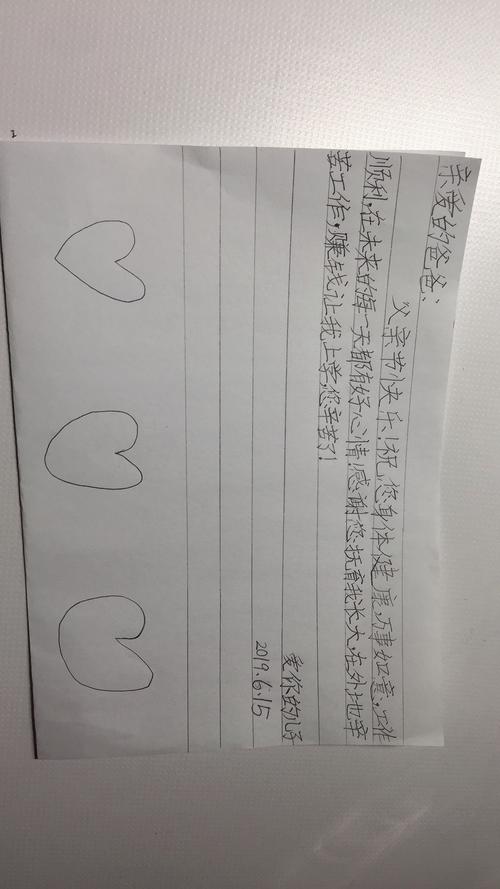 亲爱的爸爸:
父亲节快乐!祝您身体健康,万事如意,工作
顺利,在未来的每一天都有好心情!感谢您抚育我长大,在外地辛
苦工作,赚钱让我上学,您辛苦了!
爱你的儿子
2019.6.15